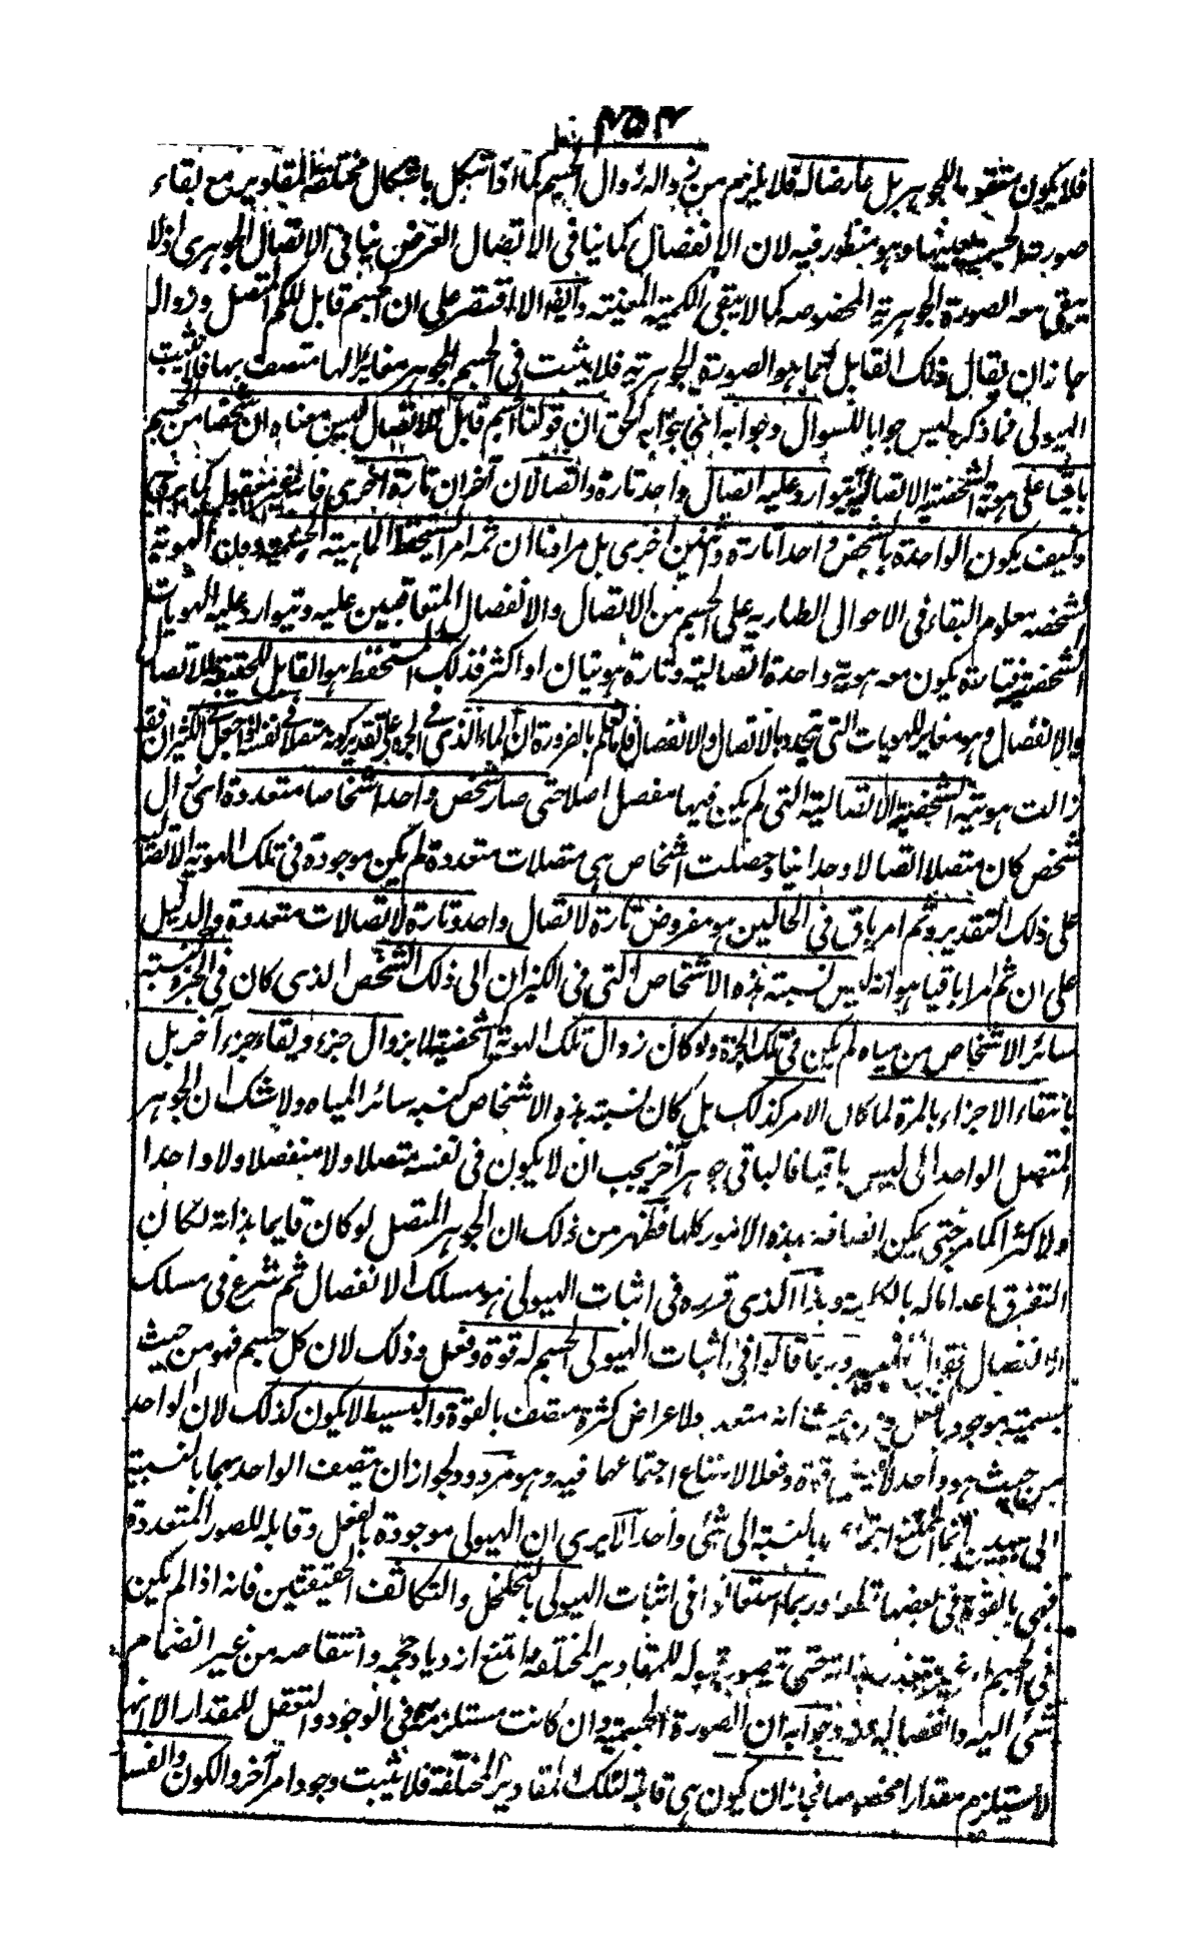 ۴۵۴
فلا یکون متقوما للجوهر بل عارضا له فلا یلزم من زواله زوال الجسم کما اذا تشکل باشکال مختلفة المقادیر مع بقاء
صورته الجسمیة بعینها وهو منظور فیه لان الانفصال کما ینافی الاتصال العرضی ینافی الاتصال الجوهری اذ لا
یبقی معه الصورة الجوهریة المخصوصه کما لا یبقی الکمیة المعینه وایضا لا اقتصر علی ان الجسم قابل للکم المتصل وزوال
جاز ان یقال ذلک القابل انما هو الصورة الجوهریة فلا یثبت فی الجسم الجوهر مغایر لها متصف بها فلا یثبت
الهیولی فما ذکره لیس جوابا للسوال وجوابه ای جوابه الحق ان قولنا الجسم قابل للاتصال لیس معناه ان شخصا من الجسم
باقیا علی هویته الشخصیة الاتصالیة یتوارد علیه اتصال واحد تارة واتصالان آخران تارة اخری فانه غیر معقول کما
وکیف یکون الواحدة بالشخص واحدا تارة واثنین اخری بل مرادنا ان ثمه امرا یستحفظ الماهیة الجسمیة دون الهویة
الشخصه معلوم البقاء فی الاحوال الطاریه علی الجسم من الاتصال والانفصال المتعاقبین علیه وتیوارد علیه الهویات
الشخصیة فتارة یکون معه هویة واحدة اتصالیة وتارة هویتان او اکثر فذلک المستحفظ هو القابل للحقیقة للاتصال
والانفصال وهو مغایر للهویات التی تتجدد بالاتصال والانفصال فانا نعلم بالضرورة ان الماء الذی فی الجرة علی تقدیر کونه متصلا فی نفسه اذا جعل فی الکیزان فقد
زالت هویته الشخصیة الاتصالیة التی لم یکن فیها مفصل اصلا حتی صار شخص واحد اشخاصا متعددة ای زال
شخص کان متصلا اتصالا وحدانیا وحصلت اشخاص هی متصلات متعددة لم یکن موجودة فی تلک الهویة الاتصالیة
علی ذلک التقدیر وثم امر باق فی الحالین هو مفروض تارة لاتصال واحد وتارة لاتصالات متعددة والدلیل
علی ان ثم امرا باقیا هو انه لیس نسبته هذه الاشخاص التی فی الکیزان الی ذلک الشخص الذی کان فی الجرة نسبته
سائر الاشخاص من میاه لم یکن فی تلک الجرة ولو کان زوال تلک الهویة الشخصیة لا بزوال جزء وبقاء جزء آخر بل
بانتفاء الاجزاء بالمرة لما کان الامر کذلک بل کان نسبته هذه الاشخاص کنسبه سائر المیاه ولا شک ان الجوهر
المتصل الواحد الی لیس باقیا فالباقی جوهر آخر یجب ان لا یکون فی نفسه متصلا ولا منفصلا ولا واحدا
ولا کثرا کما مر حتی یمکن اتصافه بهذه الامور کلها فظهر من ذلک ان الجوهر المتصل لو کان قایما بذاته لکان
التفرق اعداما له بالکلیة وهذا الذی قرره فی اثبات الهیولی هو مسلک الانفصال ثم شرع فی مسلک
الانفعال فقال وربما قالوا فی اثبات الهیولی الجسم له قوة وفعل وذلک لان کل جسم فهو من حیث
جسمیته موجود بالفعل ومن حیث انه مستعد ولاعراض کثرة متصف بالقوة والبسیط لا یکون کذلک لان الواحد
من حیث هو واحد لا قوة وفعلا لامتناع اجتماعهما فیه وهو مردود لجواز ان یتصف الواحد بهما بالنسبة
الی انما الممتنع بالنسبة الی شئی واحد الا یری ان الهیولی موجودة بالفعل وقابلة للصور المتعددة
فهی بالقوة فی بعضها وربما استعانوا فی اثبات الهیولی بالتخلخل والتکاثف الحقیقتین فانه اذا لم یکن
فی الجسم امر غیر متقدر بذاته حتی یتصور قبوله للمقادیر المختلفة امتنع ازدیاد حجمه وانتقاصه من غیر انضمام
شئی الیه وانفصاله عنه وجوابه ان الصورة الجسمیة وان کانت مستلزمة فی الوجود والتعقل للمقدار الا انها
لا یستلزم مقدارا مخصوصا فجاز ان یکون هی قابلة لتلک المقادیر المختلفة فلا یثبت وجود امر آخر والکون والفساد